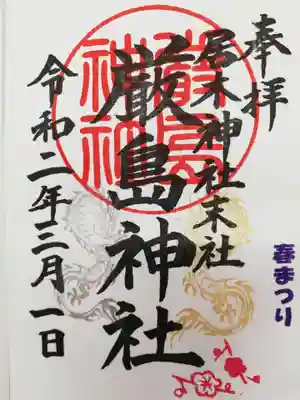 奉拝
居木神社末社
厳島神社
令和二年三月一日
春まつり
厳島神社